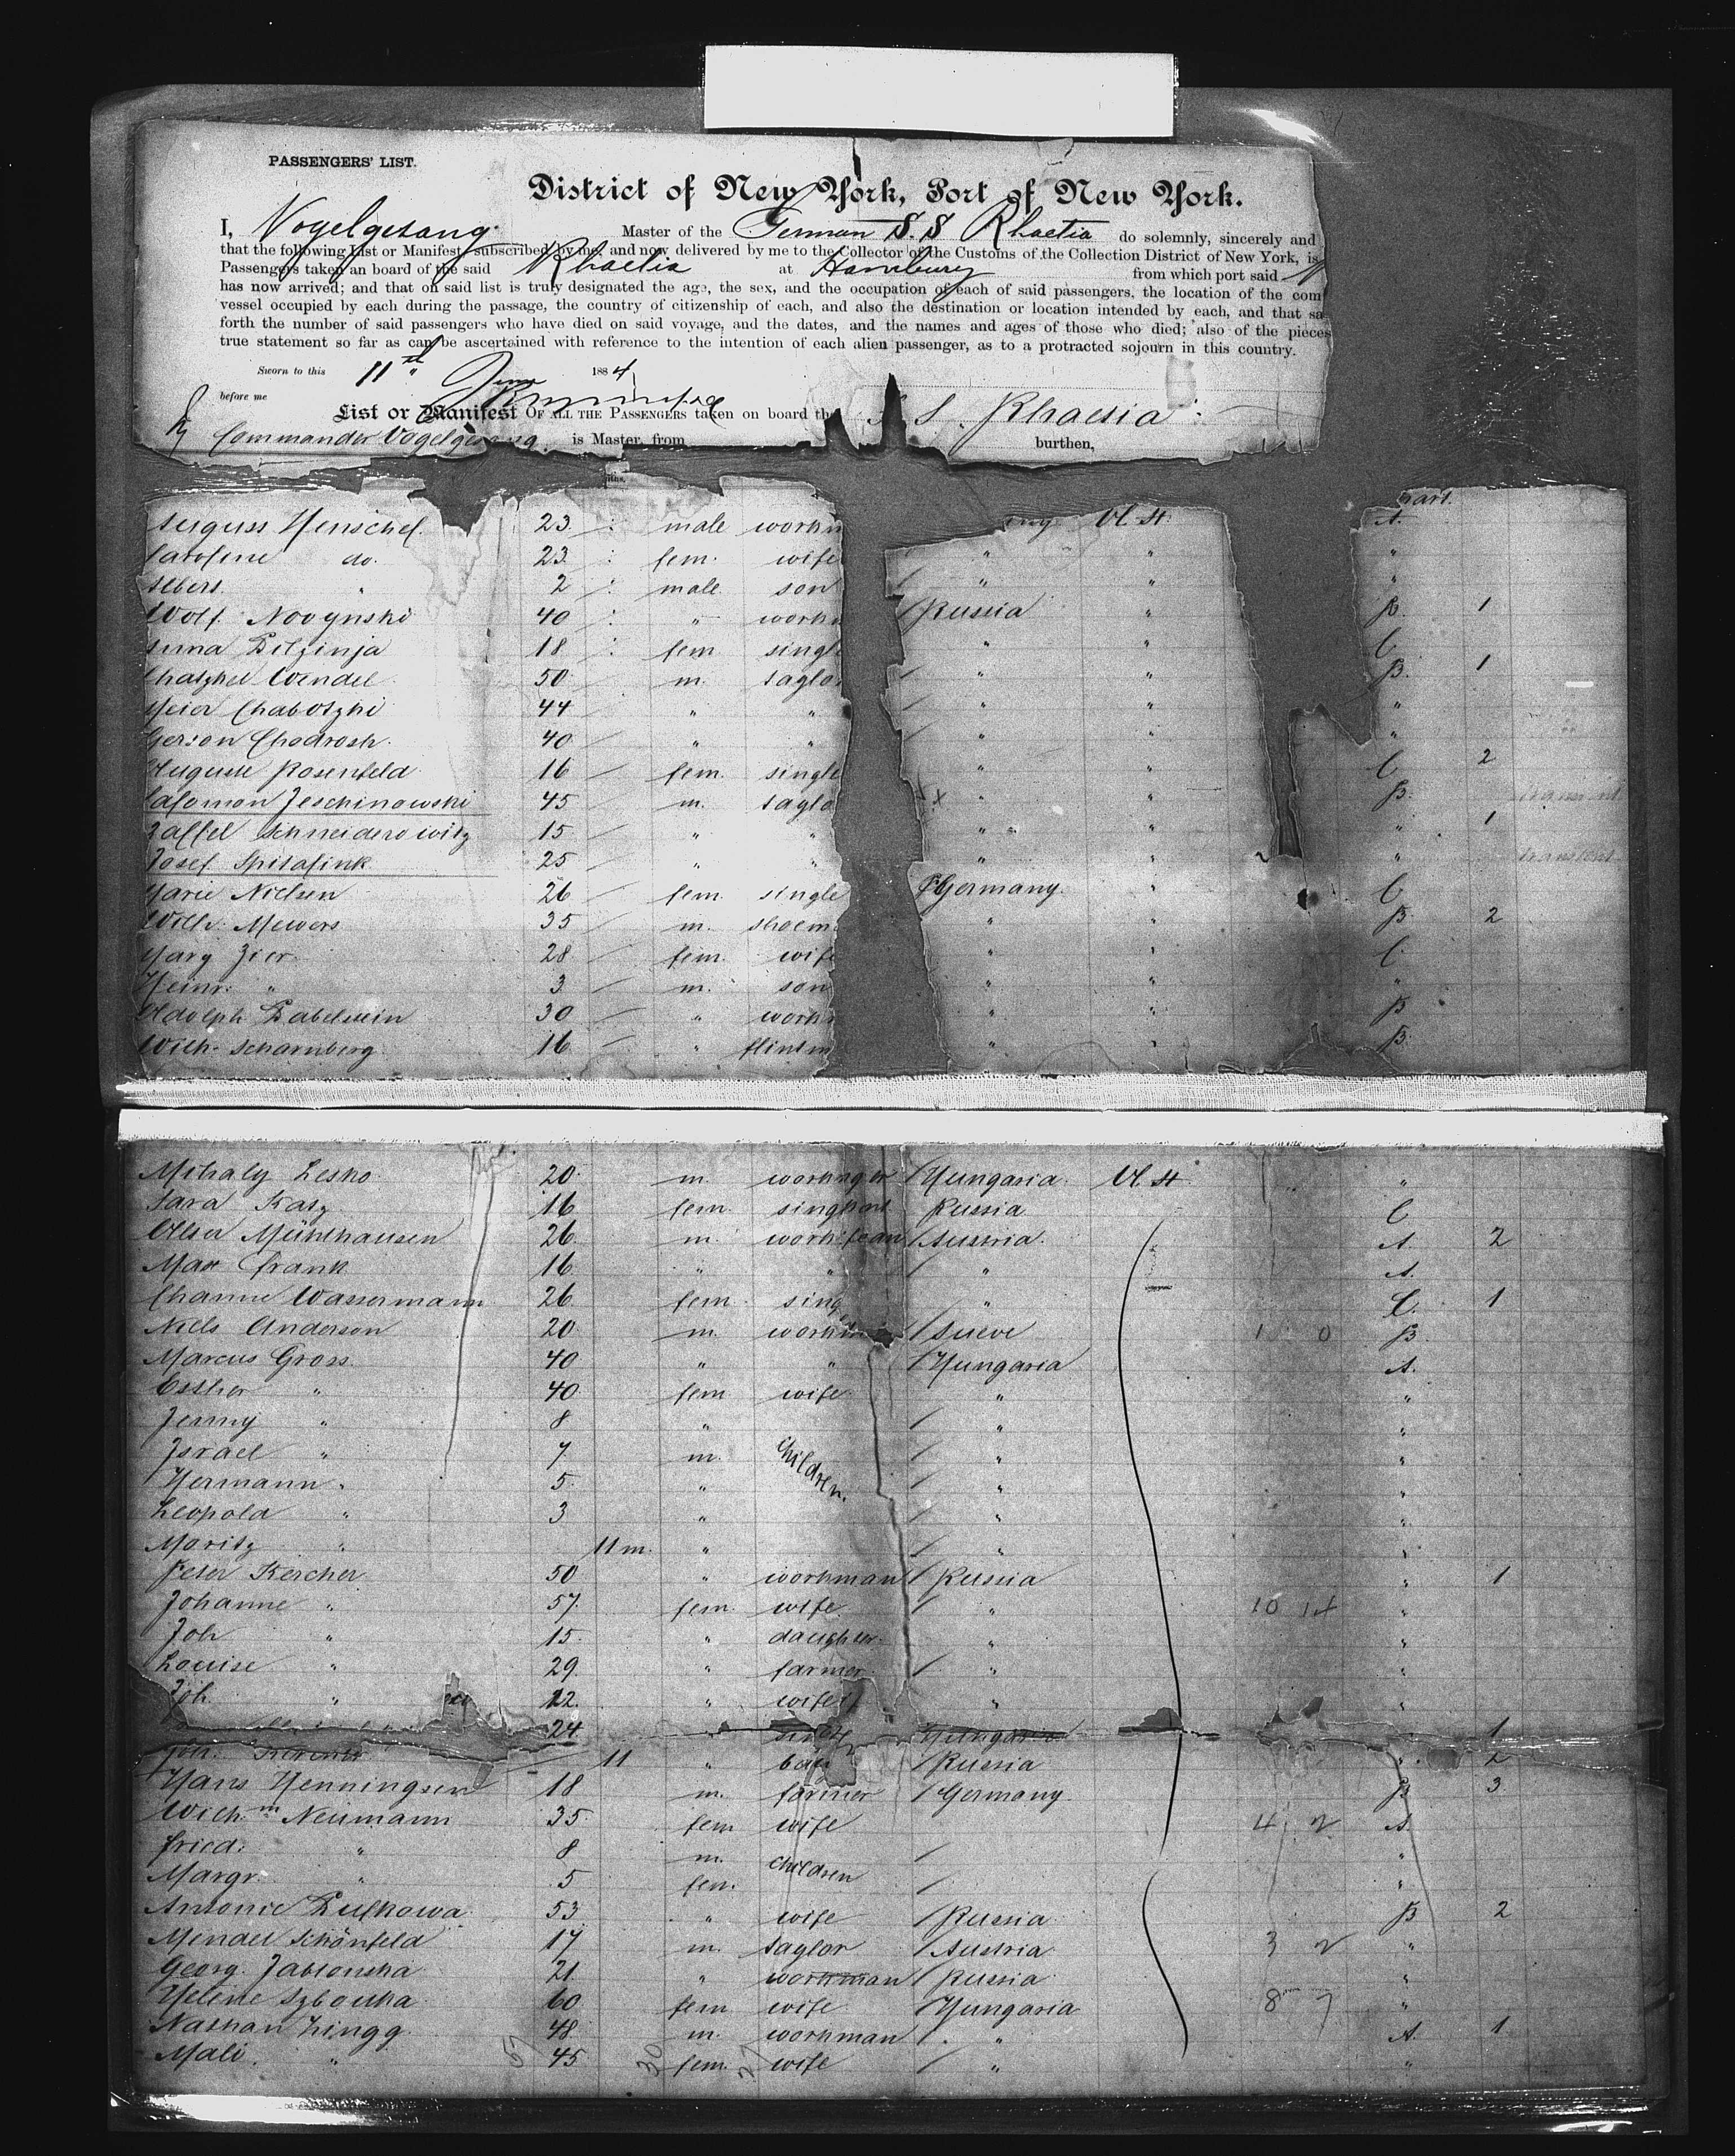 PASSENGERS' LIST.
District of New York, Port of New York.
I, Vogelgesang Master of the German S.S Rhaetia do solemnly, sincerely and
that the following List or Manifest, subscribed by me, and now delivered by me to the Collector of the Customs of the Collection District of New York, is
Passengers taken on board of the said Rhaetia at Hamburg from which port said
has now arrived; and that on said list is truly designated the age, the sex, and the occupation of each of said passengers, the location of the com
vessel occupied by each during the passage, the country of citizenship of each, and also the destination or location intended by each, and that sa
forth the number of said passengers who have died on said voyage, and the dates, and the names and ages of those who died; also of the pieces
true statement so far as can be ascertained with reference to the intention of each alien passenger, as to a protracted sojourn in this country.
Sworn to this 11th June 1884
before me
List or Manifest OF ALL THE PASSENGERS taken on board the S S. Rhaesia
Commander Vogelgesang is Master, from burthen,
Henschel 23 male workm U. St. A.
Caroline do. 23 fem. wife " " "
Albert " 2 male son " " "
Wolf 40 " workm Russia " B. 1
Anna 18 fem singl " " C
Wendel 50 m. taylor " " B. 1
Meier 44 " " " " "
Gerson 40 " " " " "
Auguste Rosenfeld 16 fem. single " " C 2
Salomon Jeschinowski 45 m. taylo x " " B. transient
Schneiderowitz 15 " " " " " 1
Josef Spitalink 25 " " " " " transient
Marie Nielsen 26 fem. single Germany " C
Wilh. Mewers 35 m. shoem " " B. 2
Marg Zier 28 fem. wife " " C.
Heinr. " 3 m. son " " "
Adolph Babelstein 30 " workm " " B
Wilh. Scharnberg 16 " flintm " " B.
Mihaly Lesko 20 m. Hungaria U. St "
Sara Katz 16 fem. Russia C
Mühlhausen 26 m. Austria. A. 2
Max Frank 16 " " " A.
Channe Wassermann 26 fem. sing " C. 1
Niels Anderson 20 m. workm 1 0 B.
Marcus Gross 40 " " Hungaria A.
Esther " 40 fem wife " "
Jenny " 8 " " "
Israel " 7 m. children. " "
Hermann " 5 " " "
Leopold " 3 " " "
Moritz " 11 m. " " "
Peter Kercher 50 " workman Russia " 1
Johanne " 57 fem. wife " 10 14 "
Joh " 15 " daughter " "
Louise " 29 " farmer " "
Joh. " 22 " wife " "
24 " Hungaria " 1
Joh. Kercher 11 " Russia " 2
Hans Henningsen 18 m. farmer Germany B 3
Wilh.m Neumann 35 fem wife 4 2 A
Fried. " 8 m. children "
Margr. " 5 fem. "
Antonie 53 " wife Russia B 2
Mendel Schönfeld 17 m. taylor Austria 3 2 "
Georg Jablonska 21 " workman Russia "
Helene 60 fem. wife Hungaria 8 7 "
Nathan Lingg 48 m. workman " A. 1
Mali " 45 fem. wife " "